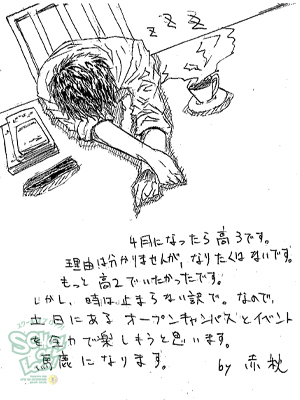 z z z z
4月になったら高3です。
理由は分かりませんが、なりたくはないです。
もっと高2でいたかったです。
しかし、時は止まらない訳で。なので、
土日にあるオープンキャンパスとイベント
を全力で楽しもうと思います。
馬鹿になります。 by 赤秋